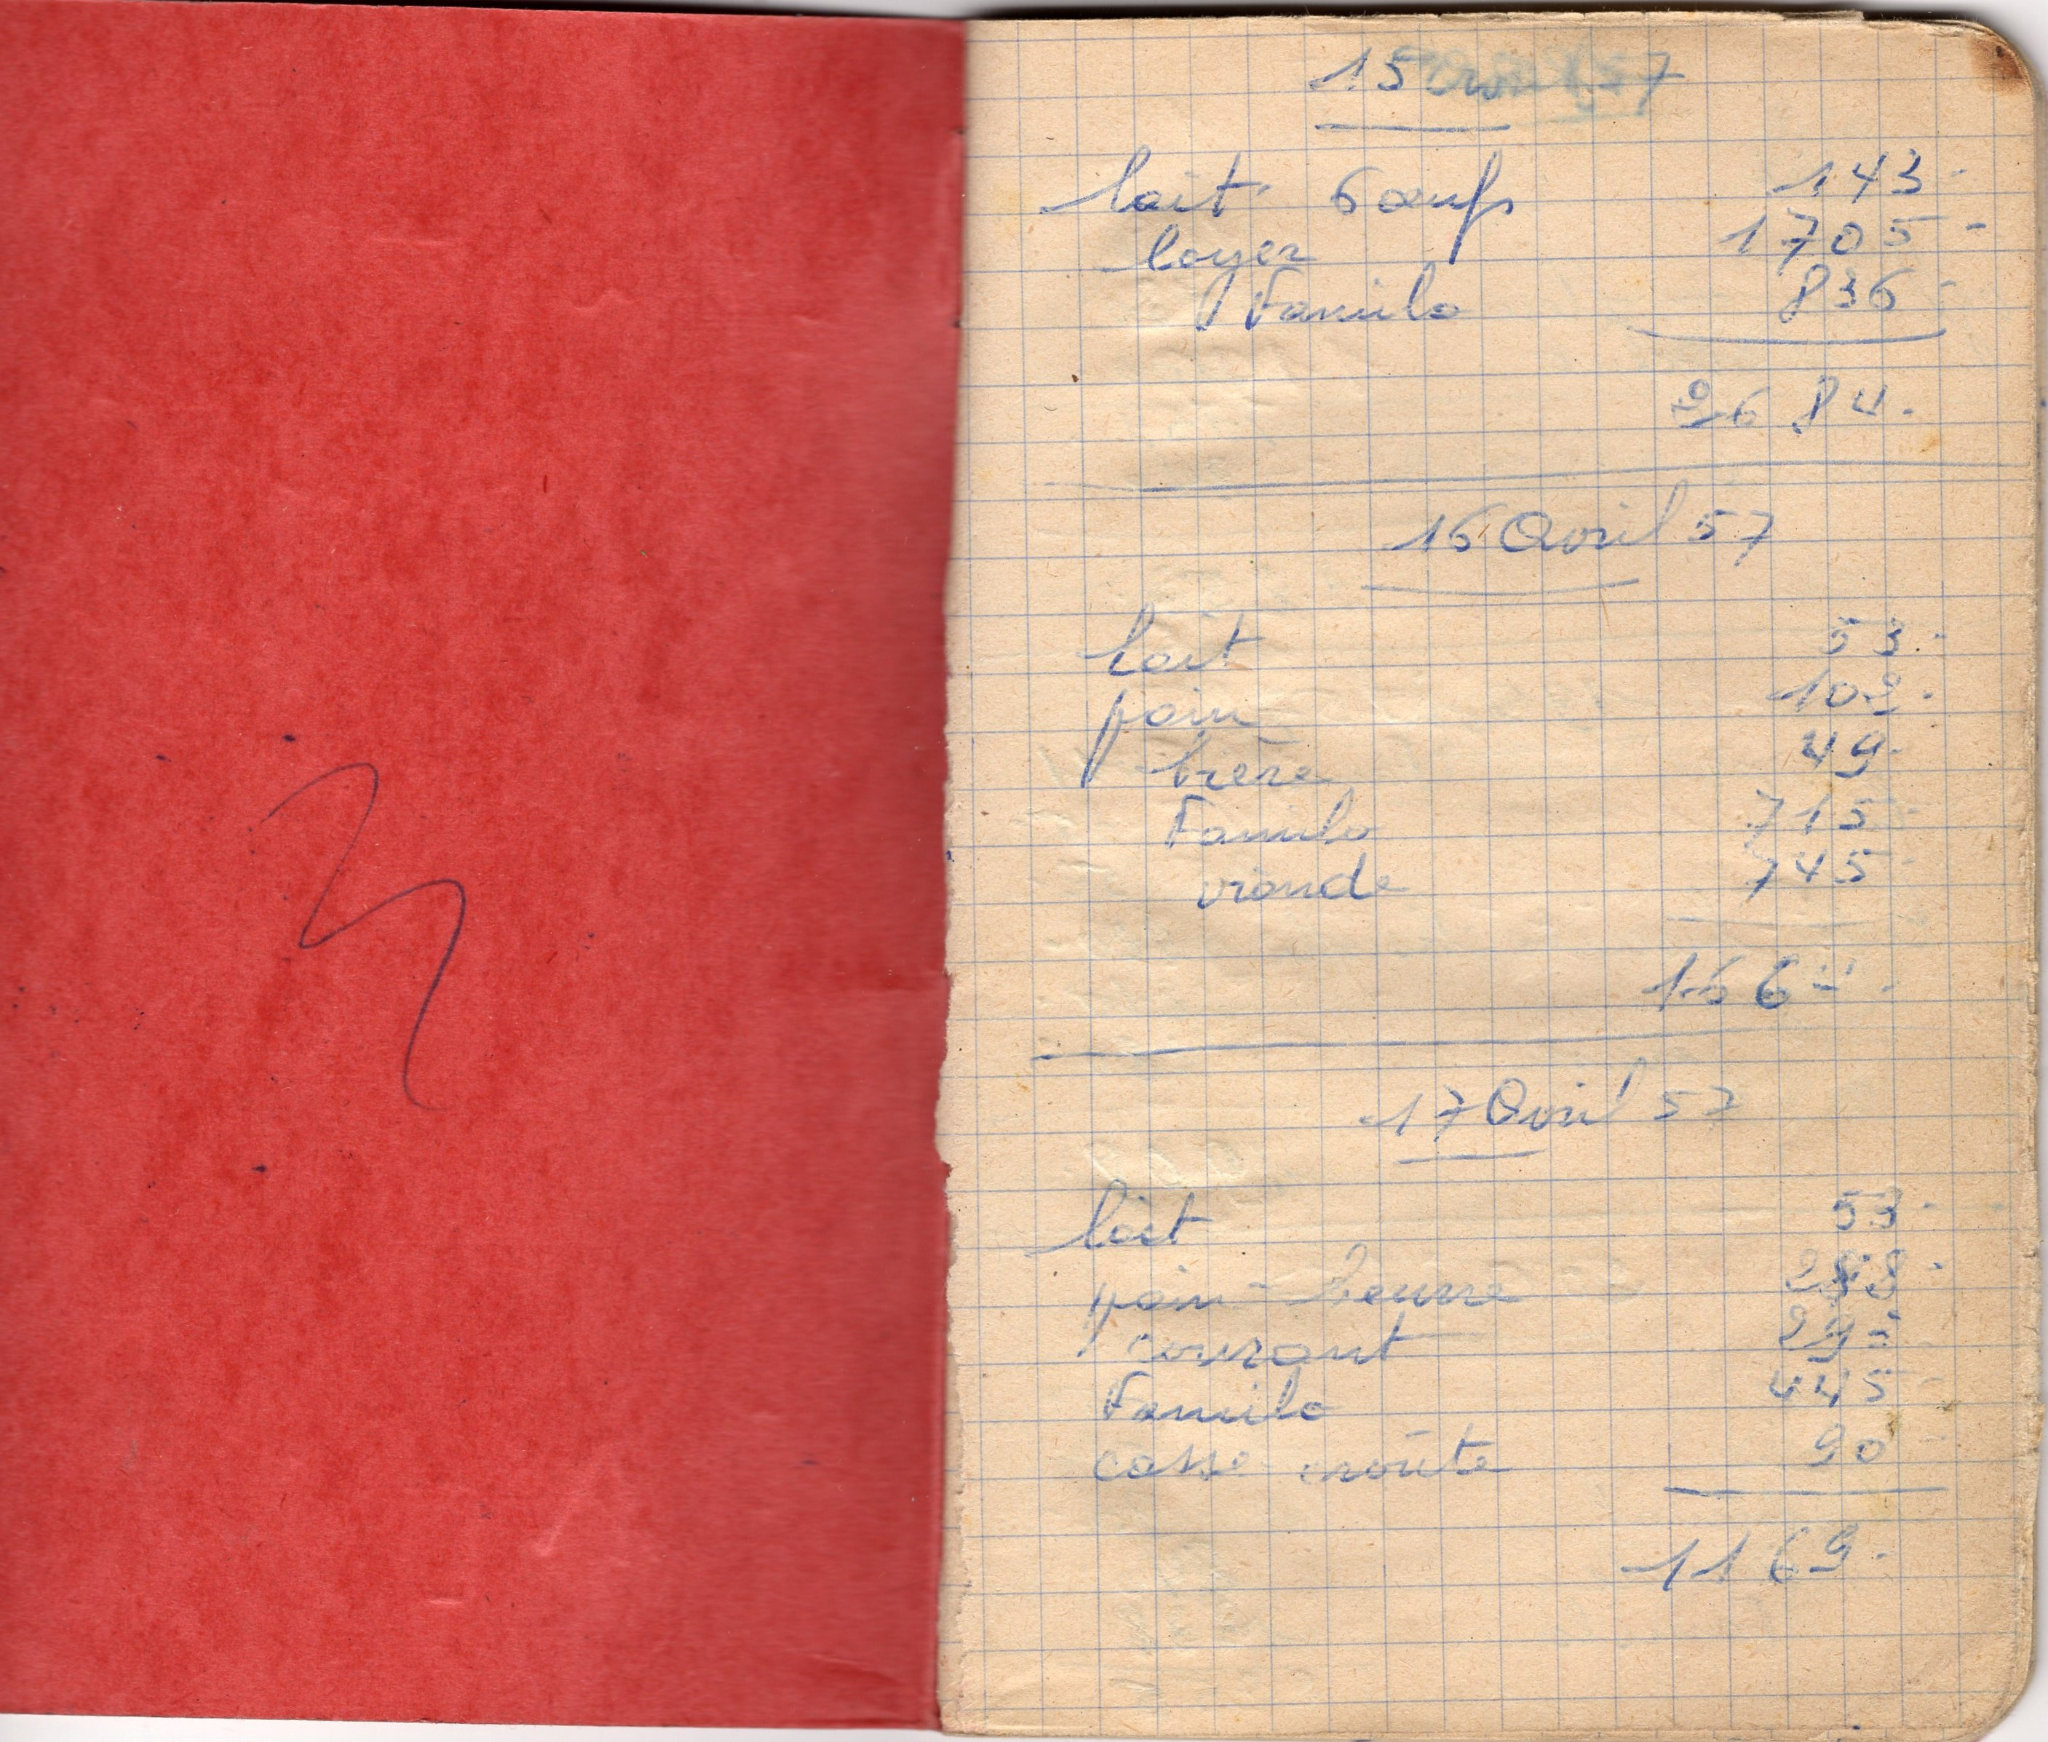 15 Avril 57
lait 6 œufs 143-
loyer 1705-
Familo 836-
2684.
16 Avril 57
lait 53-
pain 102-
bière 49-
Familo 715-
viande 745-
1664.
17 Avril 57
lait 53-
pain - beurre 288-
courant 293-
Familo 445-
casse croûte 90-
1169.